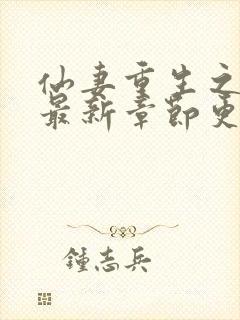 仙妻重生之
最新章节更
鍾志兵